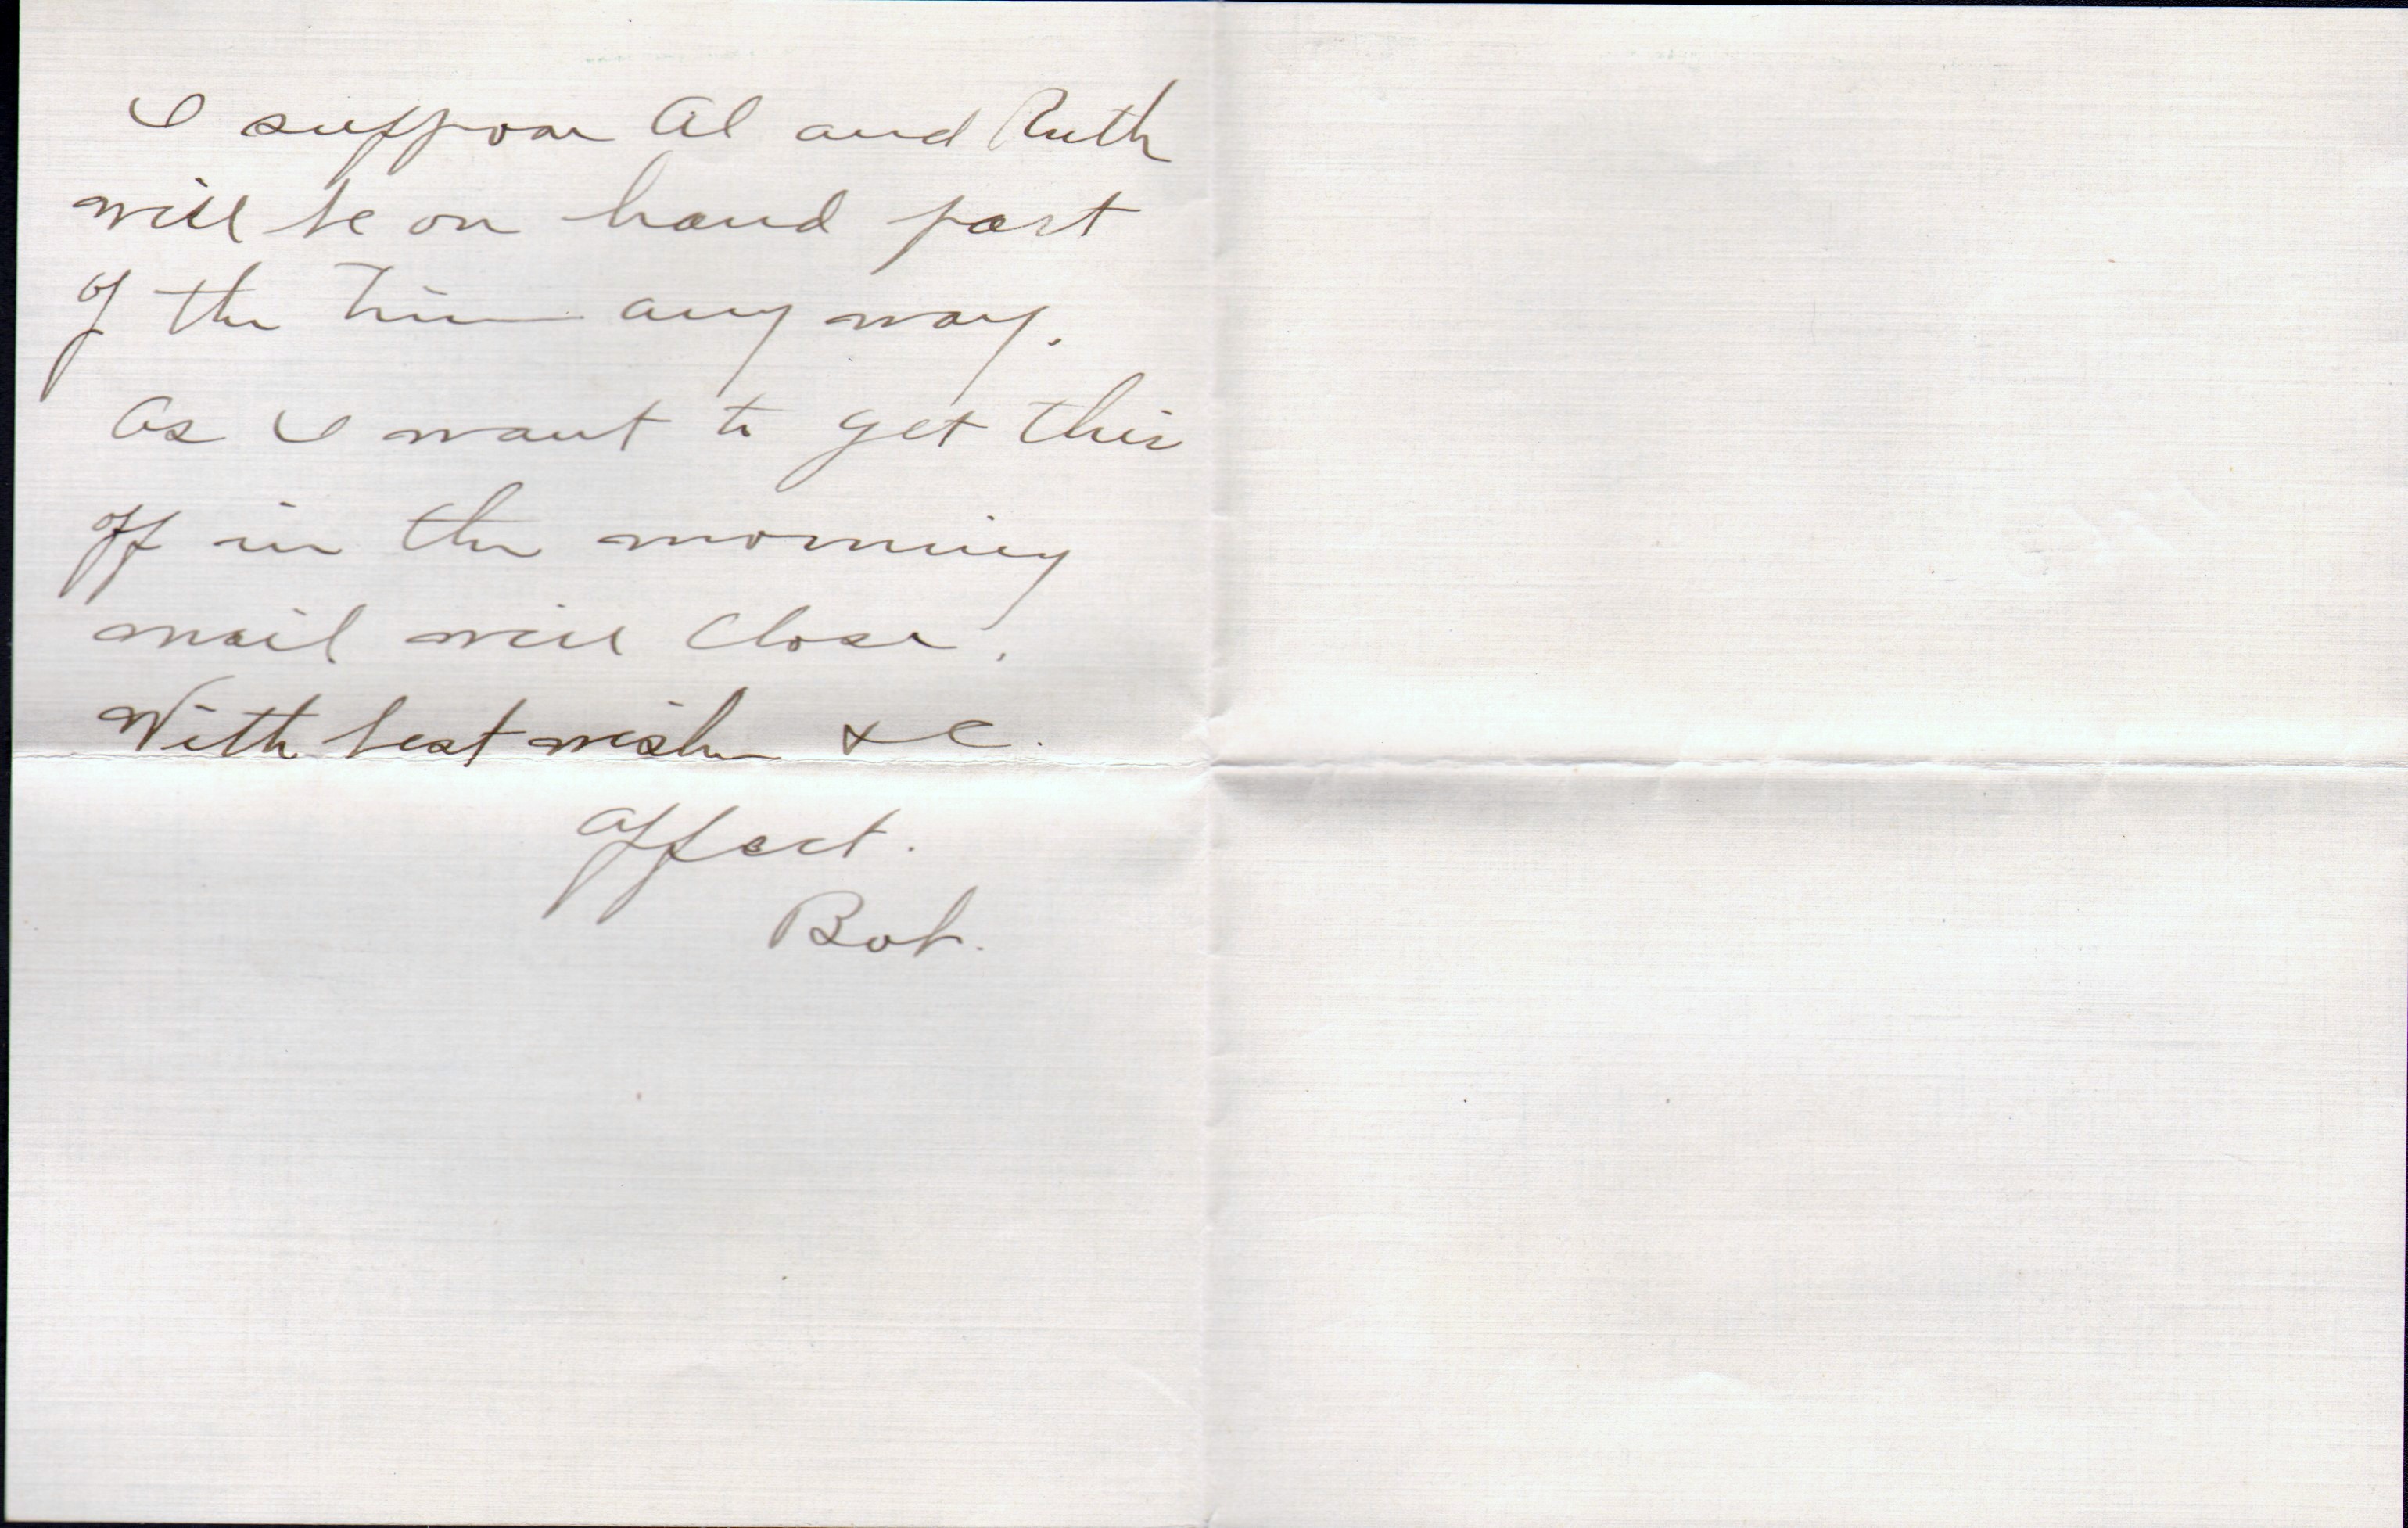 I suppose Al and Ruth
will be on hand part
of the time any way.
As I want to get this
off in the morning
mail will close.
With best wishes &c.
Affect.
Bob.